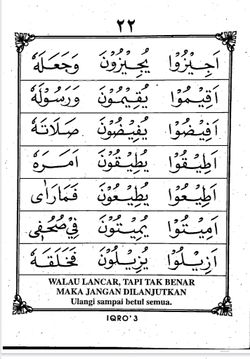 ٢٢
اَجِيْزُوْا يُجِيْزُوْنَ وَجَعَلَهٗ
اَقِيْمُوْا يُقِيْمُوْنَ وَرَسُوْلَهٗ
اَفِيْضُوْا يُفِيْضُوْنَ صَلَاتَهٗ
اَطِيْقُوْا يُطِيْقُوْنَ اَمَرَهٗ
اَطِيْعُوْا يُطِيْعُوْنَ فَمَارَاٰى
اَمِيْتُوْا يُمِيْتُوْنَ فِيْ صُحُفِيْ
اَزِيْلُوْا يُزِيْلُوْنَ فَخَلَقَهٗ
WALAU LANCAR, TAPI TAK BENAR
MAKA JANGAN DILANJUTKAN
Ulangi sampai betul semua.
IQRO'3